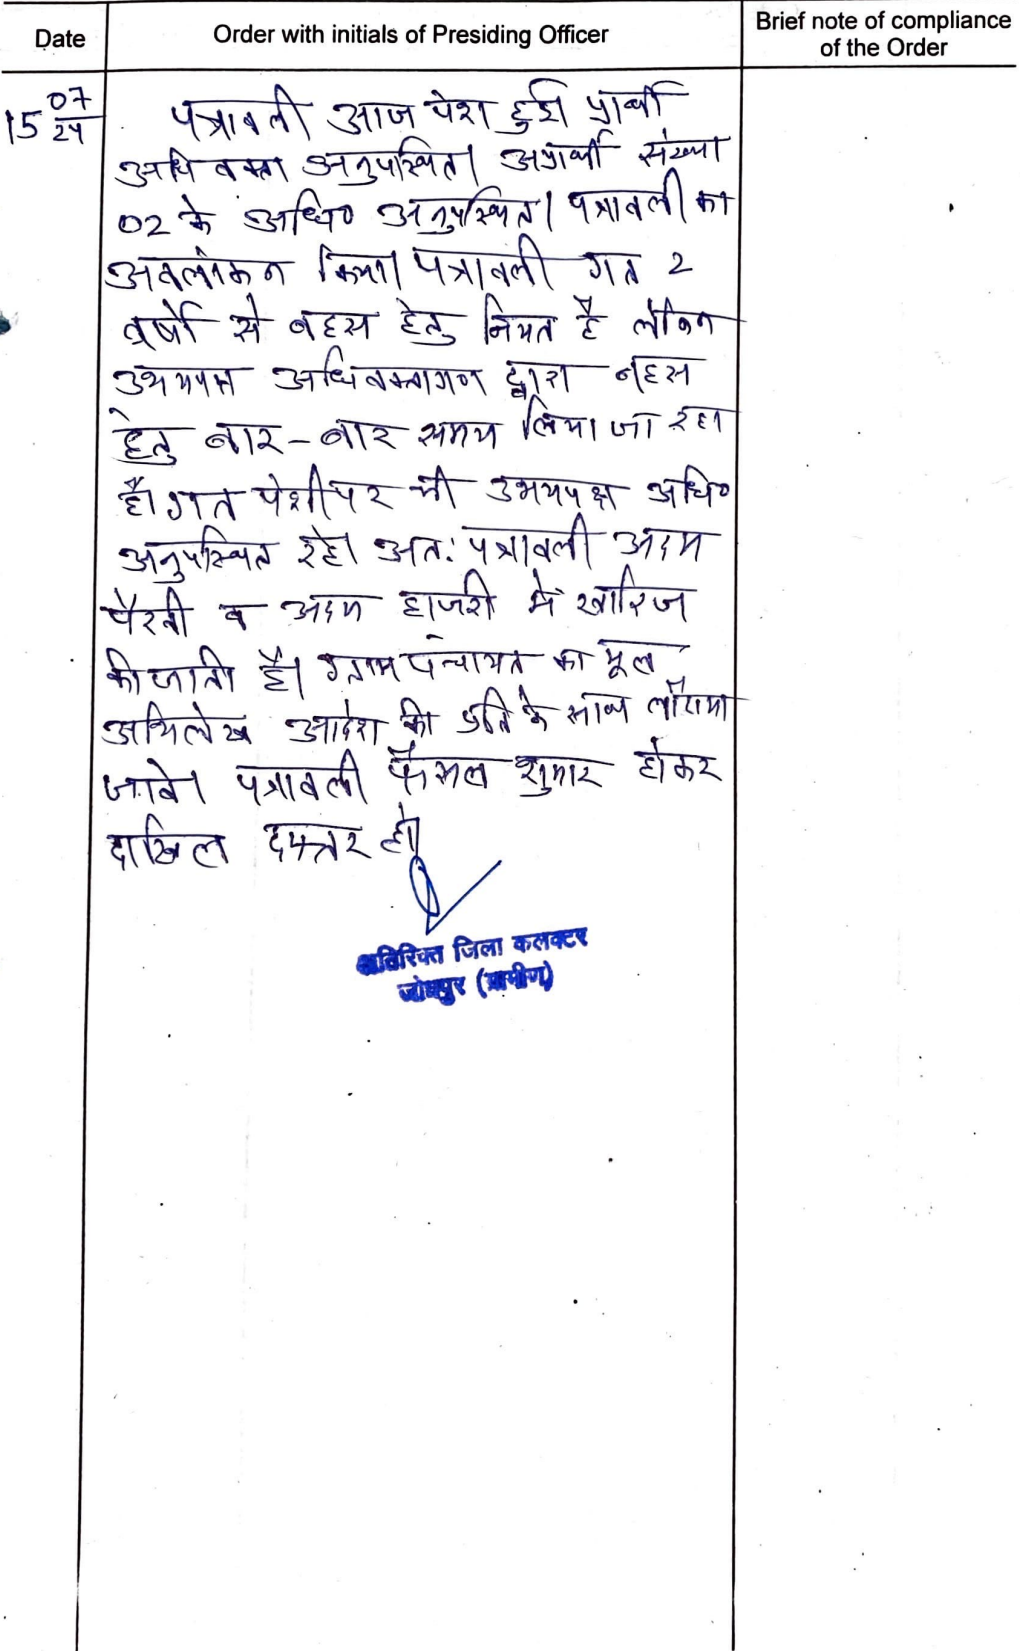 Date
Order with initials of Presiding Officer
Brief note of compliance
of the Order
15 07/24
पत्रावली आज पेश हुई प्रार्थी
अधिवक्ता अनुपस्थित। अप्रार्थी संख्या
02 के अधि० अनुपस्थित। पत्रावली का
अवलोकन किया। पत्रावली गत 2
वर्षों से बहस हेतु नियत है लेकिन
उभयपक्ष अधिवक्तागण द्वारा बहस
हेतु बार-बार समय लिया जा रहा
है। गत पेशी पर भी उभयपक्ष अधि०
अनुपस्थित रहे। अत: पत्रावली अदम
पैरवी व अदम हाजरी में खारिज
की जाती है। ग्राम पंचायत का मूल
अभिलेख आदेश की प्रति के साथ लौटाया
जावे। पत्रावली फैसल शुमार होकर
दाखिल दफ्तर हो।
अतिरिक्त जिला कलक्टर
जोधपुर (ग्रामीण)